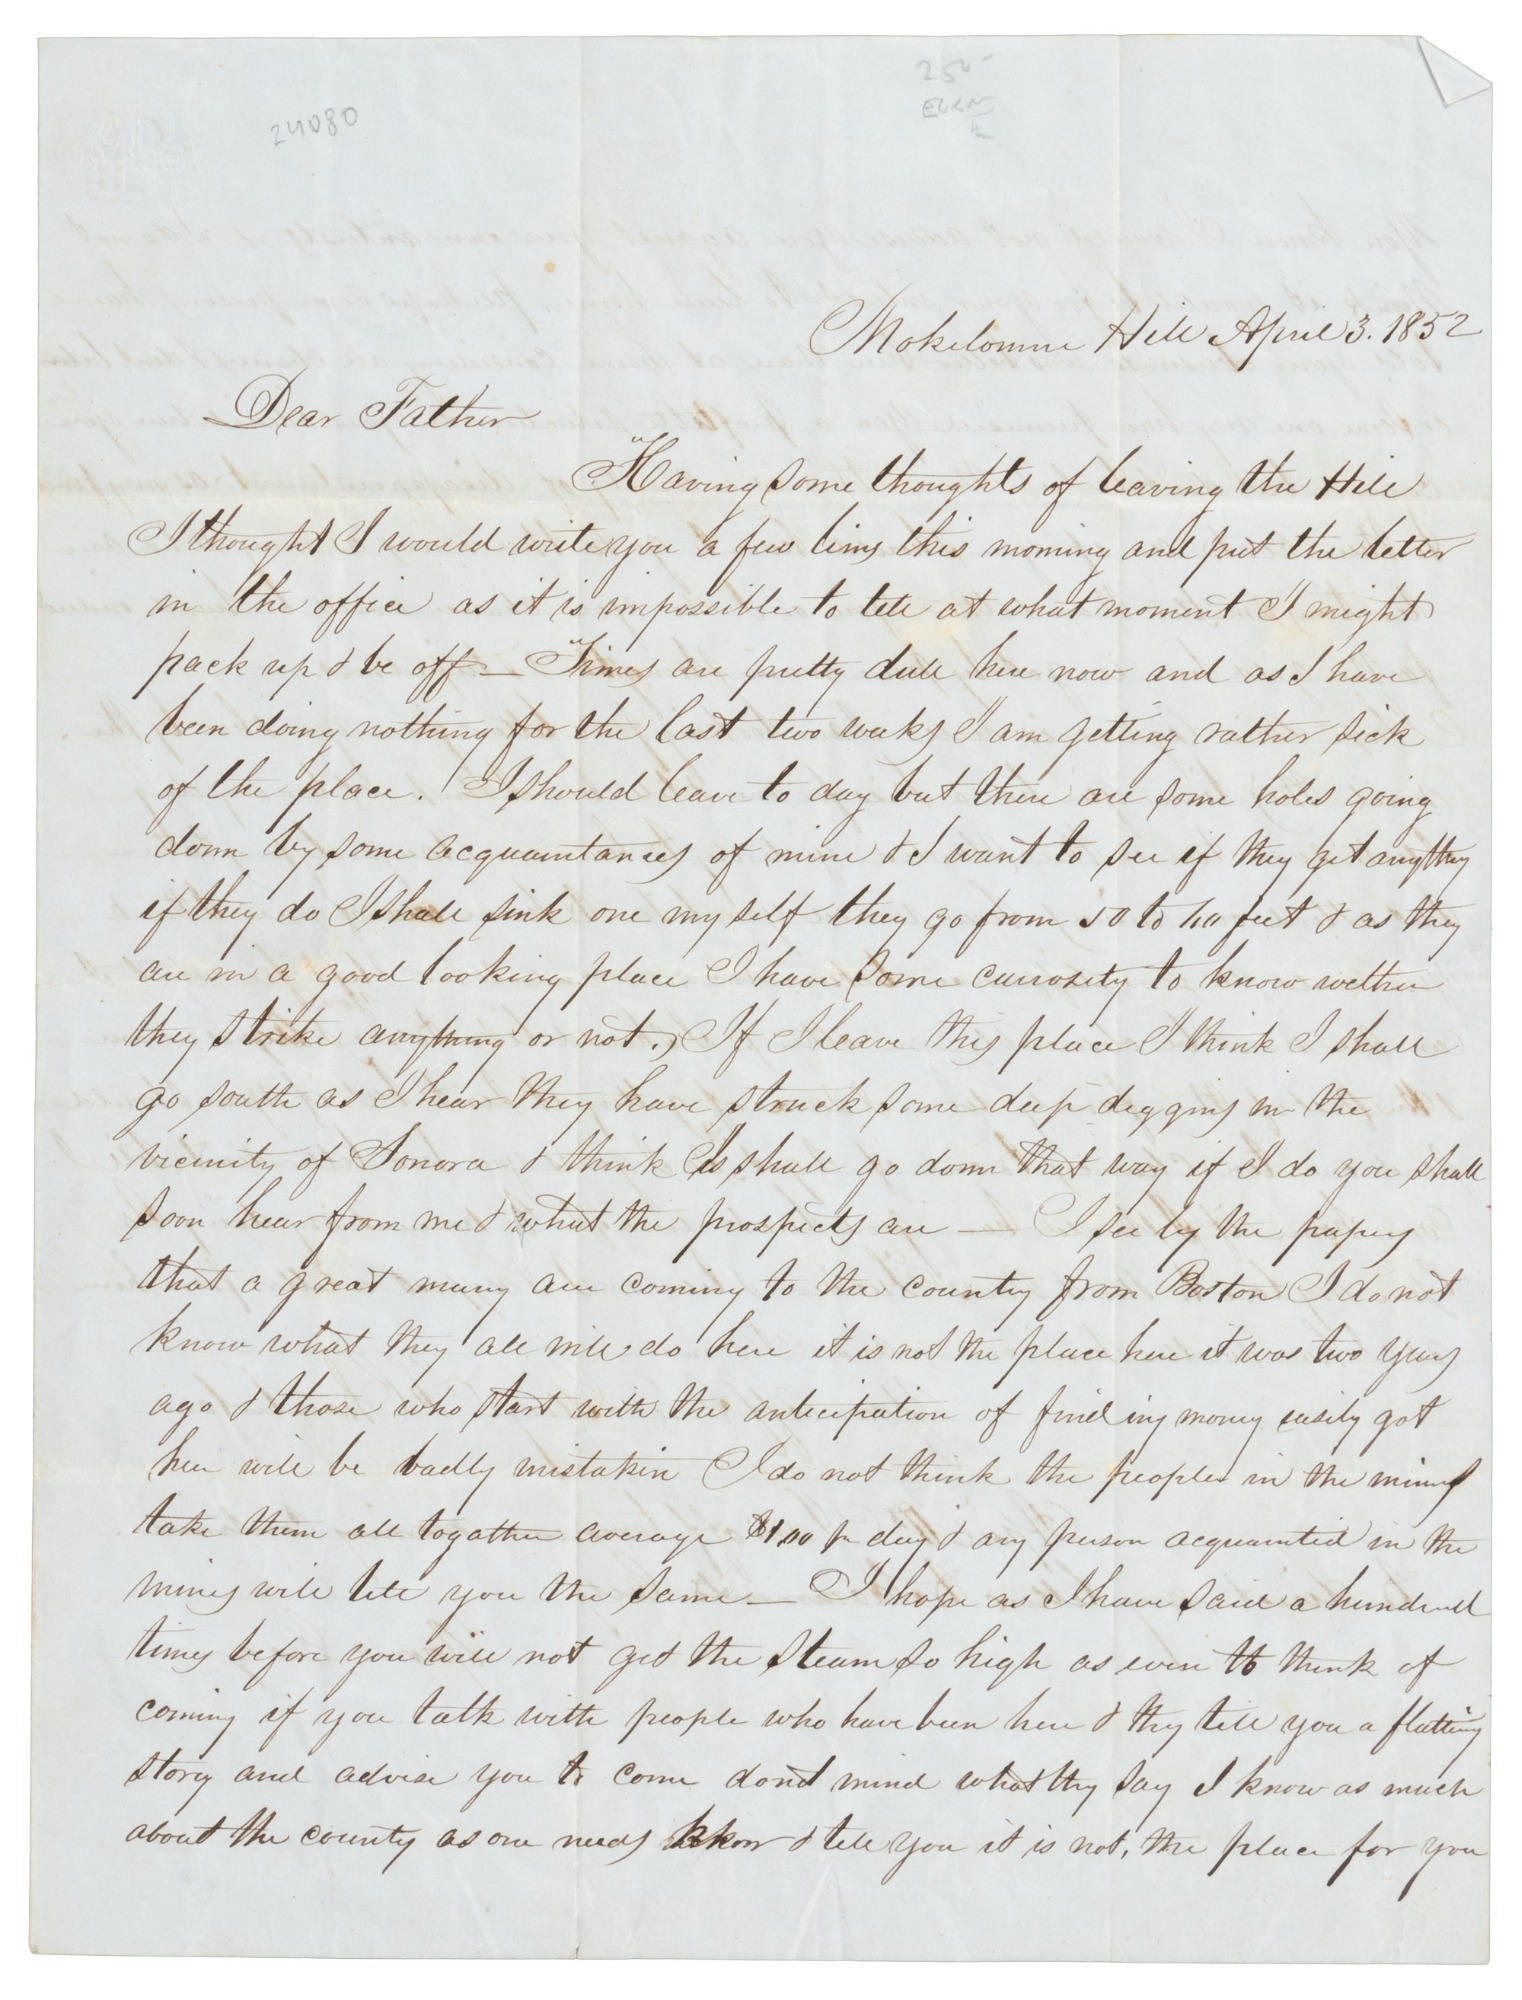 24080
250-
Mokelomne Hill April 3. 1852
Dear Father
Having some thoughts of leaving the Hill
I thought I would write you a few lines this morning and put the letter
in the office as it is impossible to tell at what moment I might
pack up & be off — Times are pretty dull here now and as I have
been doing nothing for the last two weeks I am getting rather sick
of the place. I should leave to day but there are some holes going
down by some acquaintances of mine & I want to see if they get anything
if they do I shall sink one my self they go from 50 to 60 feet & as they
are in a good looking place I have some curiosity to know wether
they strike anything or not. If I leave this place I think I shall
go south as I hear they have struck some deep diggings in the
vicinity of Sonora & think I shall go down that way if I do you shall
soon hear from me & what the prospects are — I see by the papers
that a great many are coming to the country from Boston I do not
know what they all will do here it is not the place here it was two years
ago & those who start with the anticipation of finding money easily got
here will be badly mistaken I do not think the people in the mines
take them all togather average $1.00 pr day & any person acquainted in the
mines will tell you the same — I hope as I have said a hundred
times before you will not get the steam so high as even to think of
coming if you talk with people who have been here & they tell you a flatting
story and advise you to come dont mind what they say I know as much
about the country as one needs know & tell you it is not, the place for you